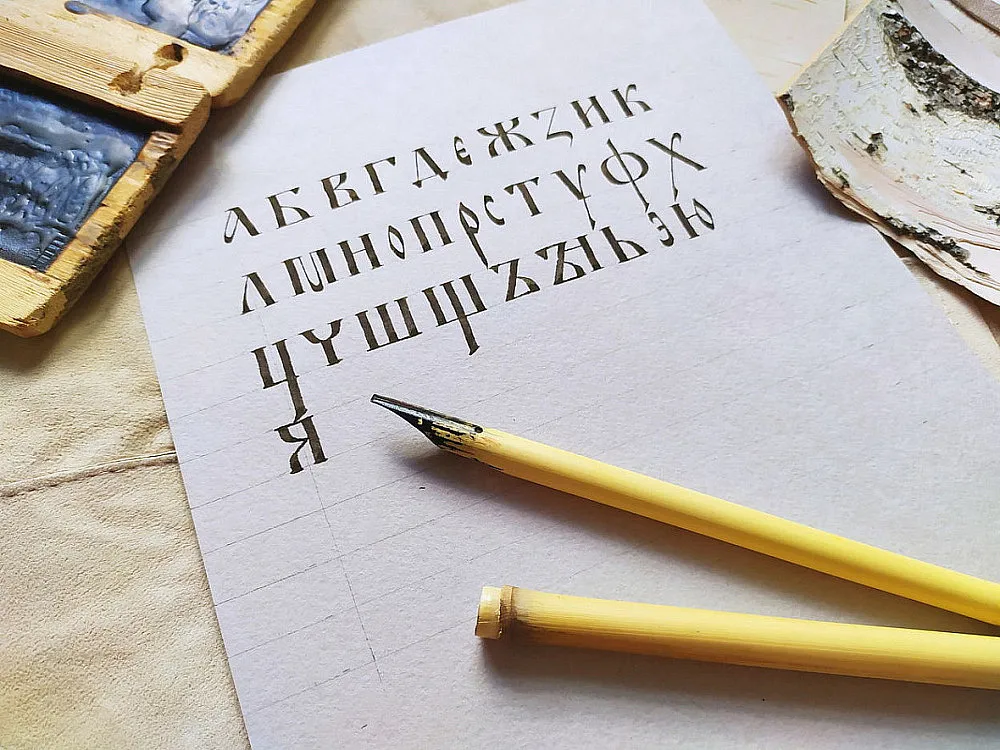 АБВГДЕЖЗИК
ЛМНОПРСТУФХ
ЦЧШЩЪꙐЬЭЮ
Я